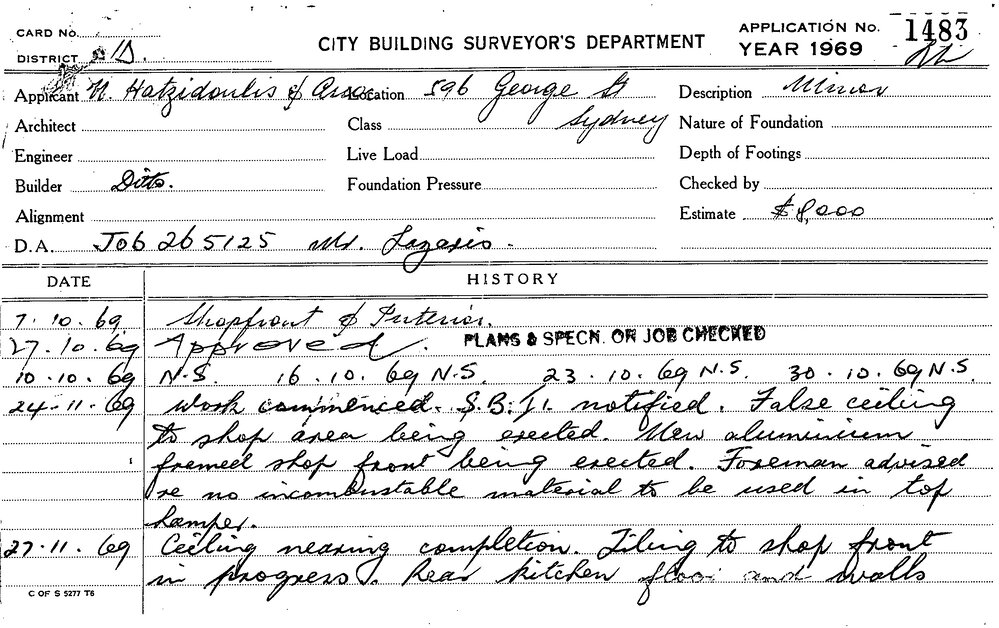 CARD No.
DISTRICT D.
CITY BUILDING SURVEYOR'S DEPARTMENT
APPLICATION No. 1483
YEAR 1969
Applicant N. Hatzidoulis & Assoc Location 596 George St Sydney
Description Minor
Architect
Class
Nature of Foundation
Engineer
Live Load
Depth of Footings
Builder Ditto.
Foundation Pressure
Checked by
Alignment
Estimate $8,000
D.A. Job 265125 Mr. Lazaris.
DATE HISTORY
7.10.69 Shopfront & Interior.
27.10.69 Approved. PLANS & SPECN. OR JOB CHECKED
10.10.69 N.S. 16.10.69 N.S. 23.10.69 N.S. 30.10.69 N.S.
24.11.69 Work commenced. S.B.I. notified. False ceiling
to shop area being erected. New aluminium
framed shop front being erected. Foreman advised
re no incombustable material to be used in top
hamper.
27.11.69 Ceiling nearing completion. Tiling to shop front
in progress. Rear kitchen floor and walls
C OF S 5277 T6